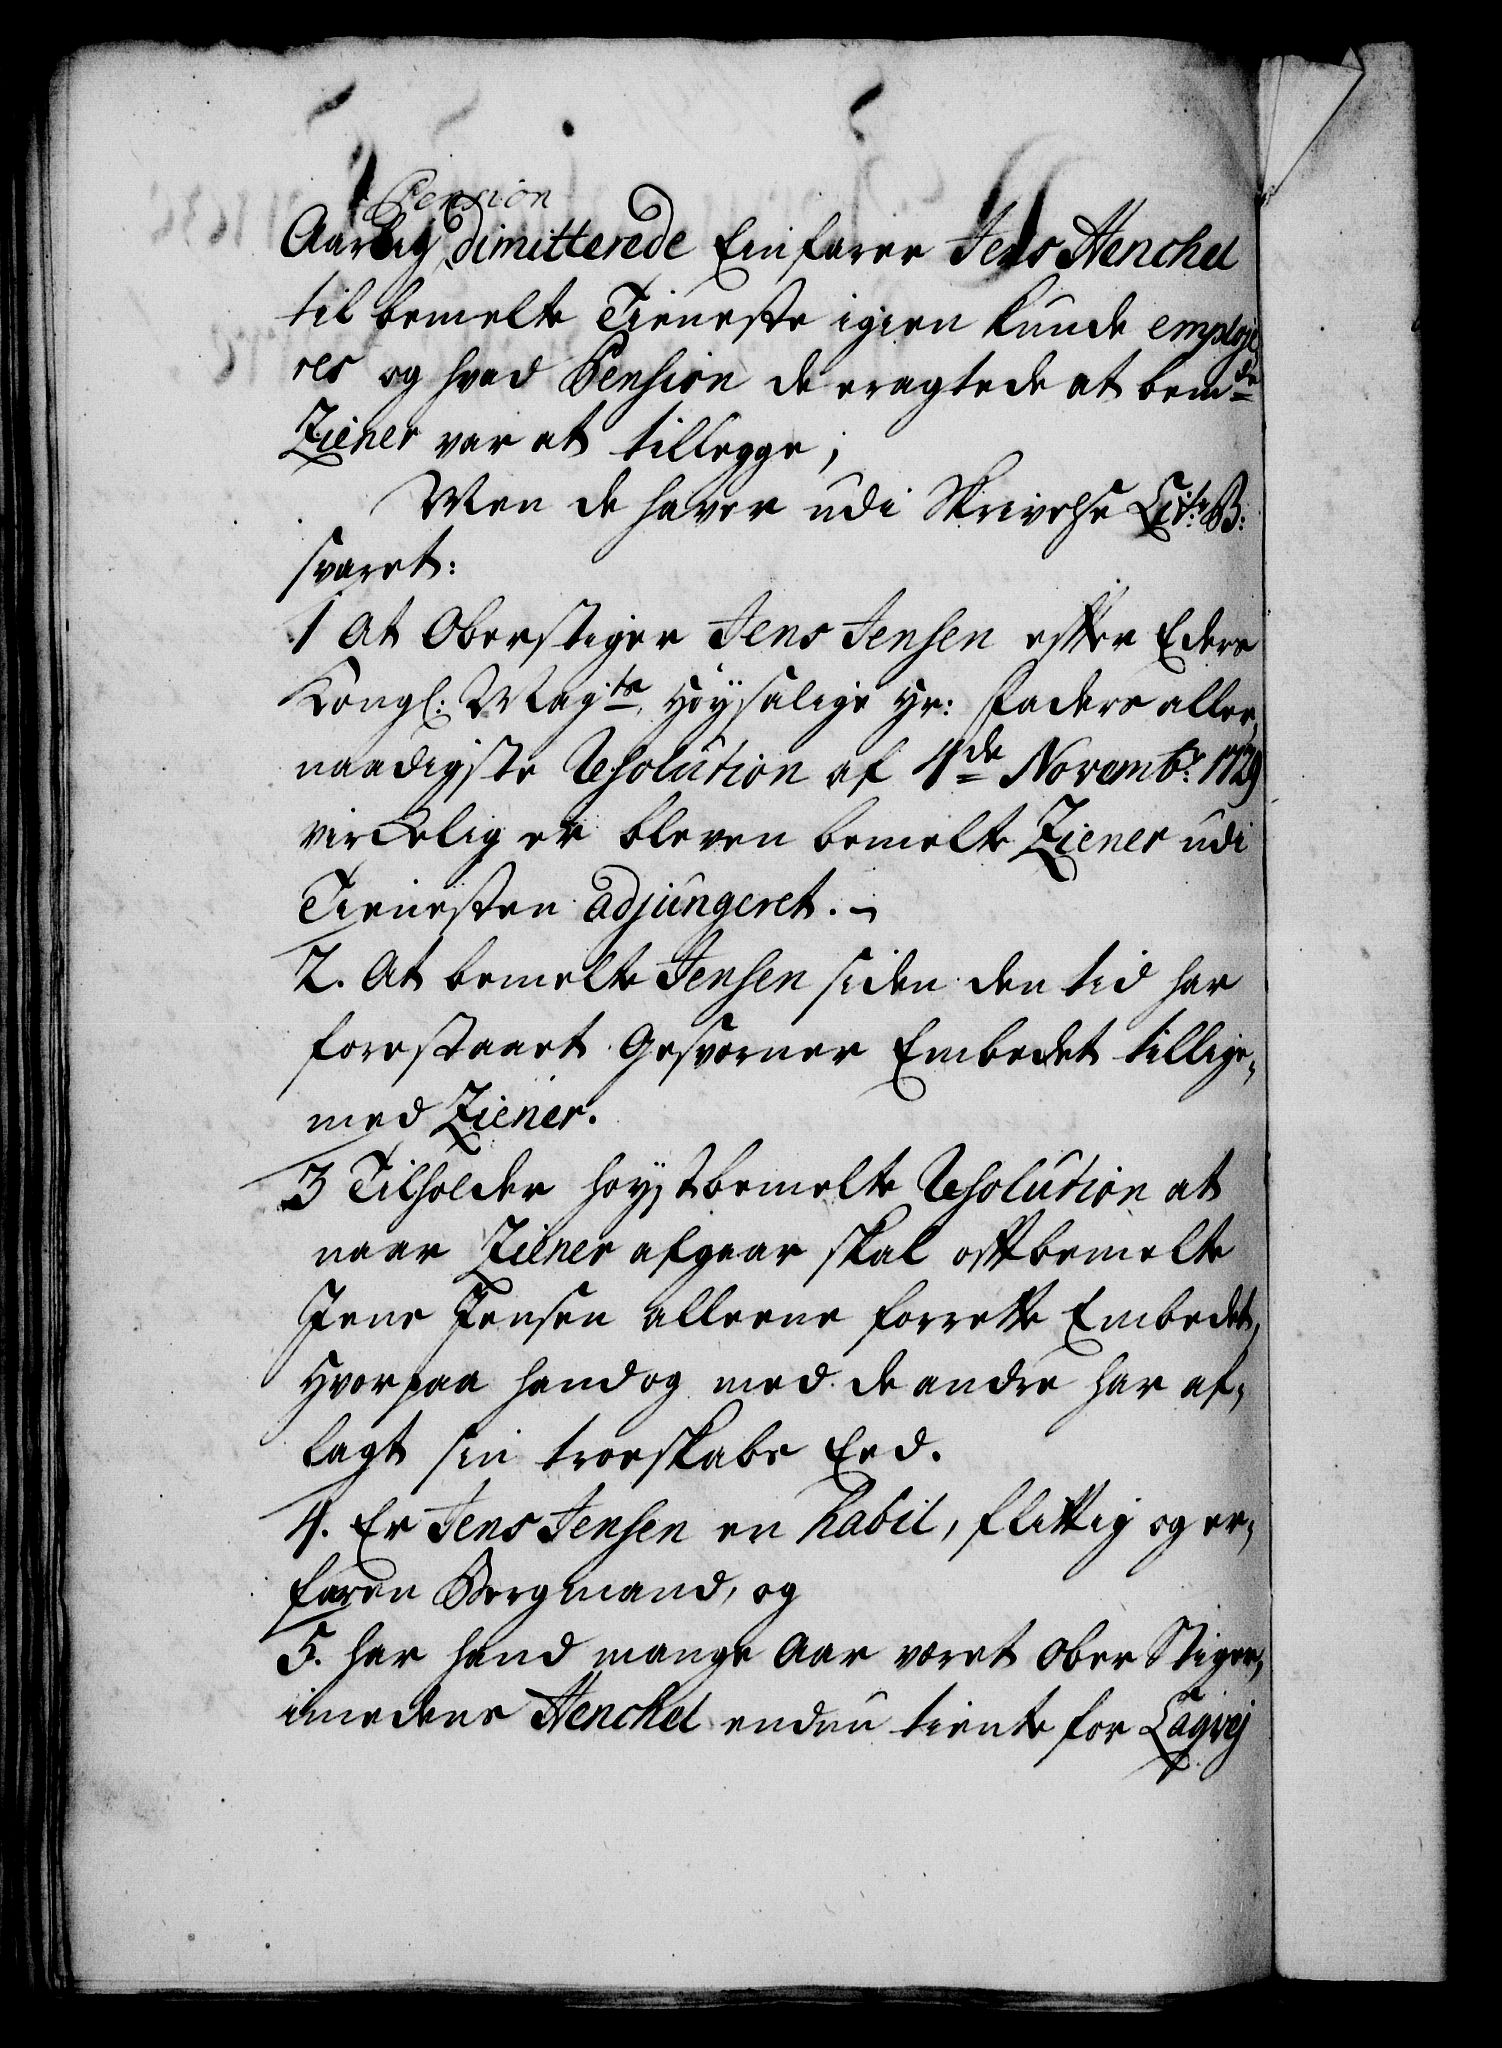 Pension
Aarlig dimitterede Einfarer Jens Henchel
til bemelte Tieneste igien kunde employe
res og hvad Pension de eragtede at bemte
Ziener var at tillegge;
Men de haver udi Skrivelse Lit: B:
svaret:
1 At Oberstiger Jens Jensen efter Eders
Kongl: Majts høysalige Hr: Faders aller,
naadigste Resolution af 4de Novembr: 1729
virckelig er bleven bemelte Ziener udi
Tienesten adjungeret. ⁓
2. At bemelte Jensen siden den tid har
forestaaet Gesvorner Embedet tillige,
med Ziener.
3 Tilholder høystbemelte Resolution at
naar Ziener afgaar skal oftbemelte
Jens Jensen alleene forrette Embedet,
Hvorpaa hand og med de andre har af,
lagt sin troeskabs Eed.
4. Er Jens Jensen en habil, flittig og er,
faren Bergmand, og
5. har hand mange Aar været Ober Stiger,
imedens Henchel endnu tiente for Laqvej